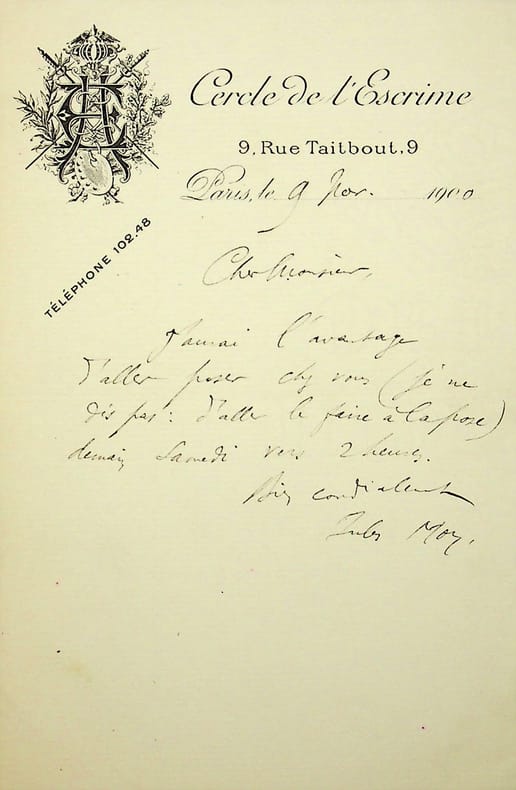 Cercle de l'Escrime
9, Rue Taitbout, 9
Paris, le 9 Nov. 1900
TÉLÉPHONE 102.48
Cher Monsieur,
J'aurai l'avantage
d'aller poser chez vous (je ne
dis pas: d'aller le faire à la pose)
demain Samedi vers 2 heures.
Bien cordialement
Jules Moy.